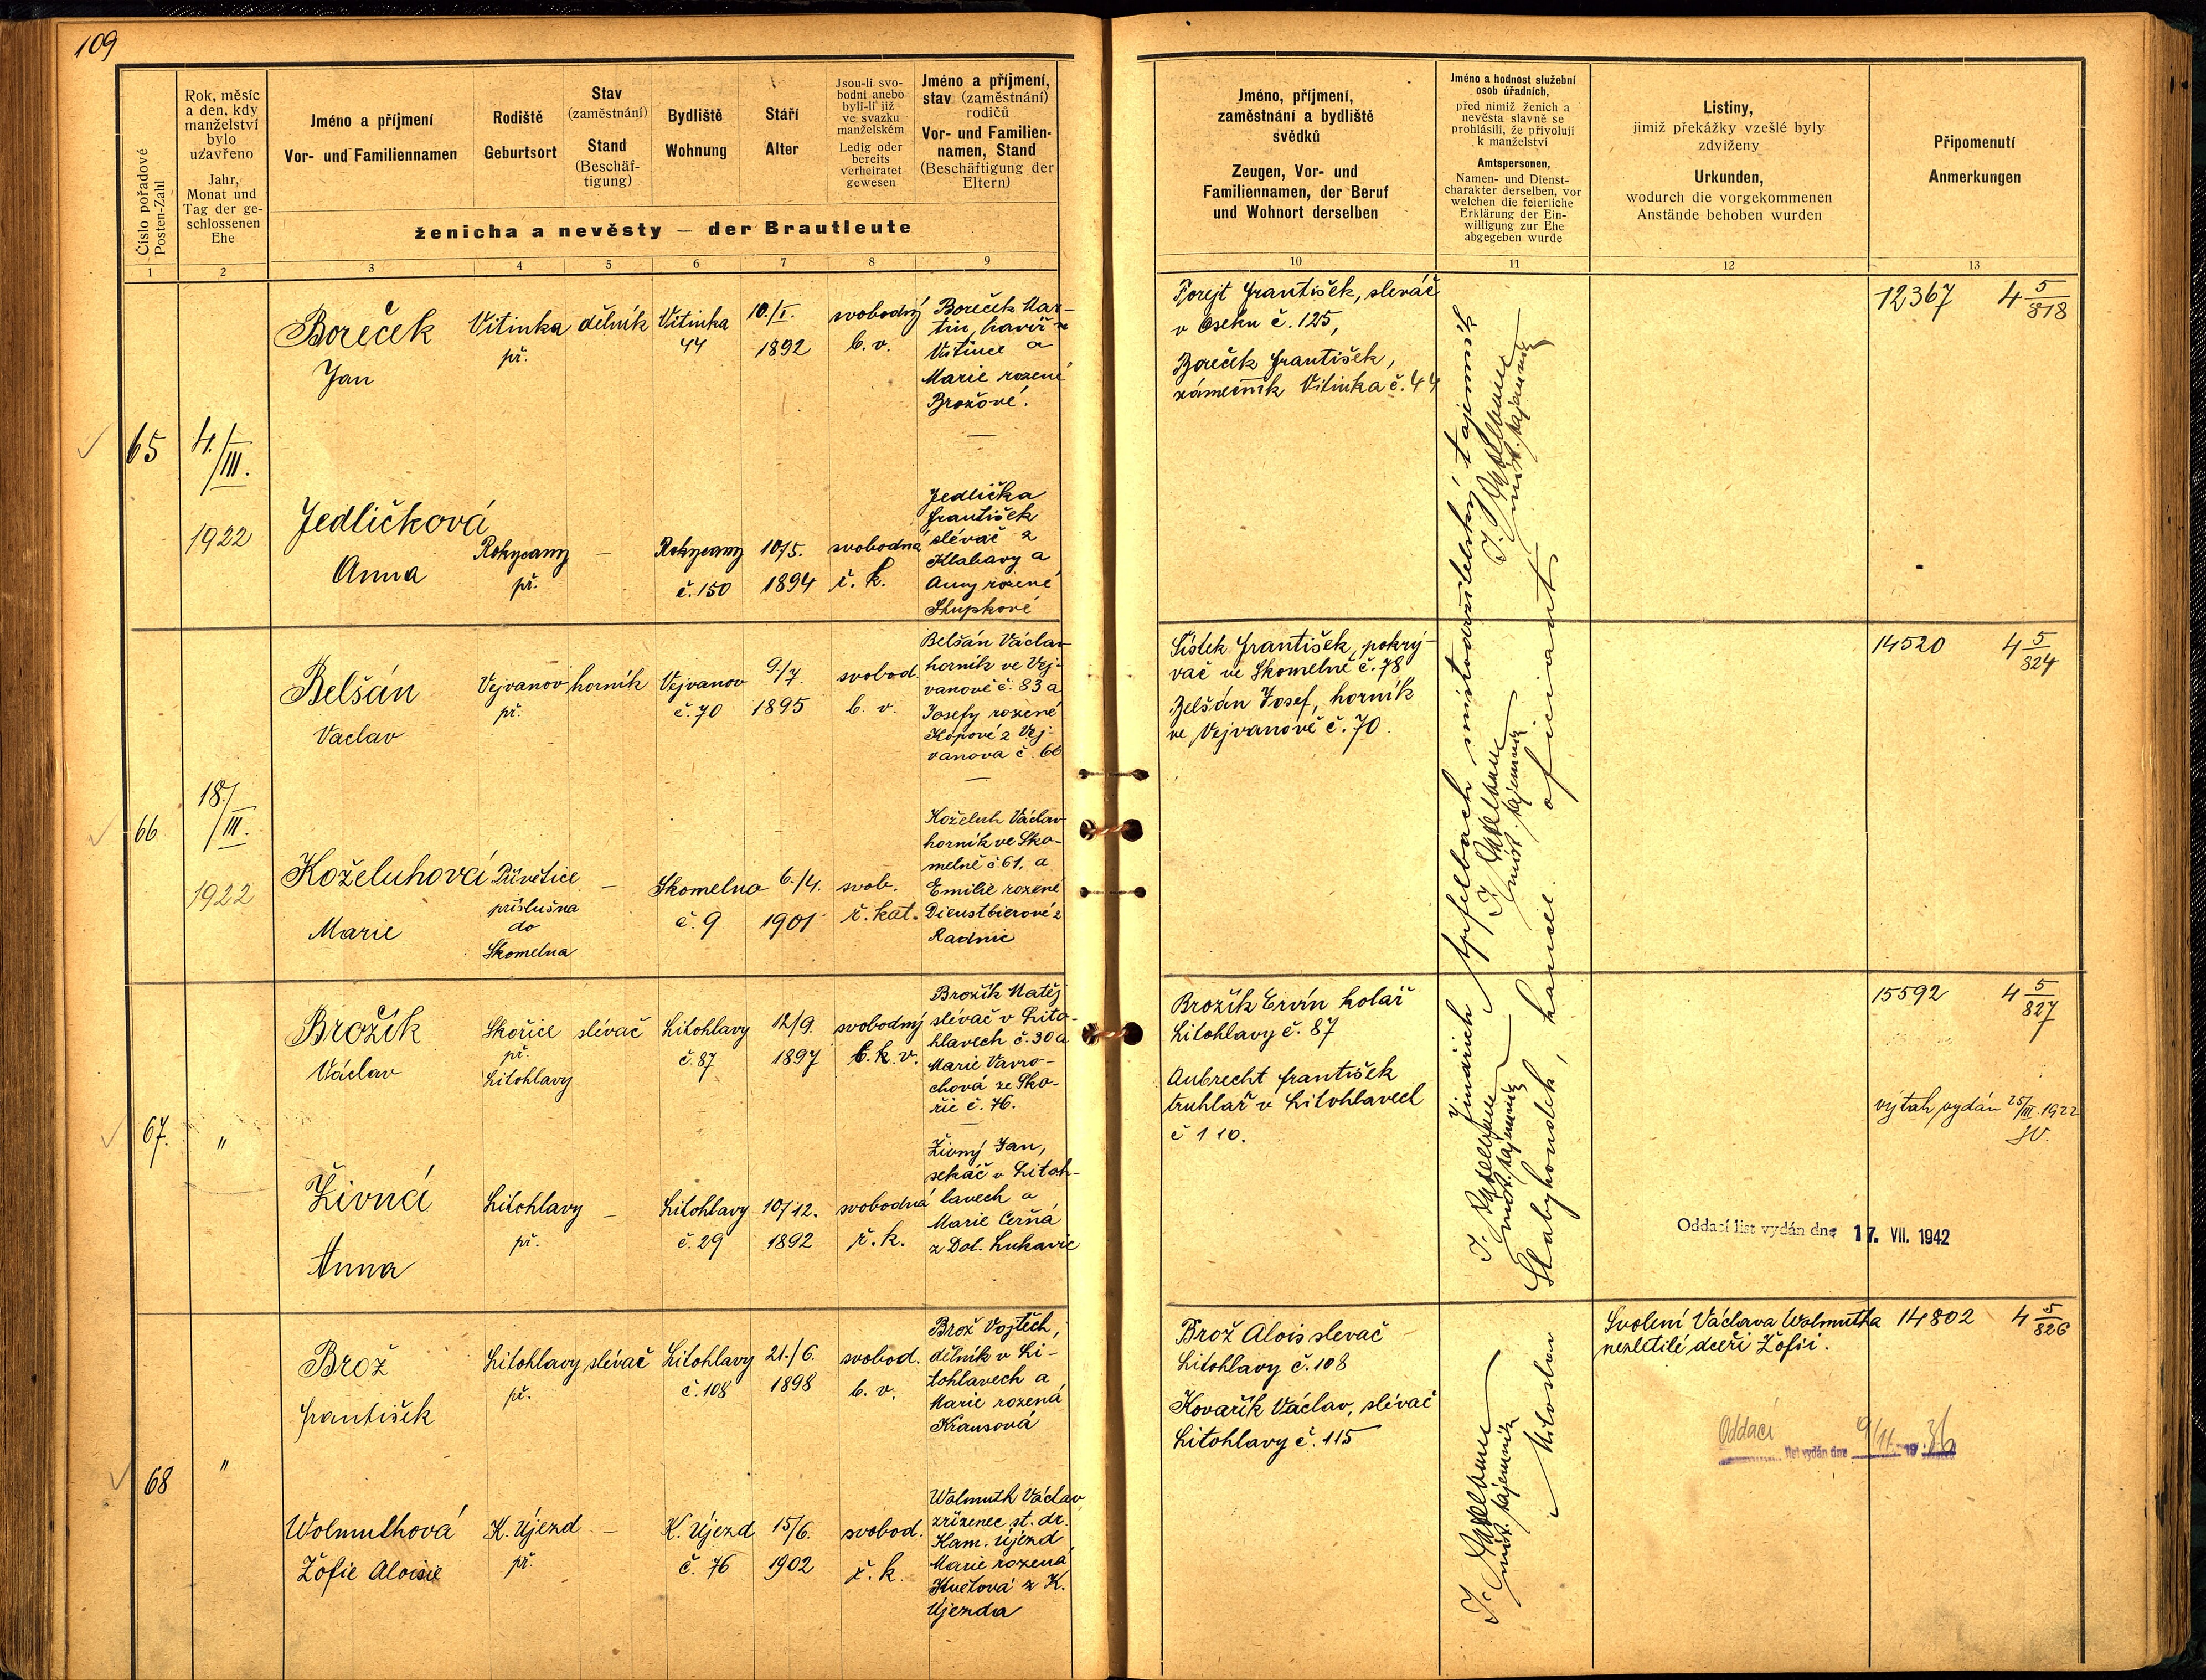 109
Číslo pořadové
Posten-Zahl
Rok, měsíc
a den, kdy
manželství
bylo
uzavřeno
Jahr,
Monat und
Tag der ge-
schlossenen
Ehe
Jméno a příjmení
Vor- und Familiennamen
Rodiště
Geburtsort
Stav
(zaměstnání)
Stand
(Beschäf-
tigung)
Bydliště
Wohnung
Stáří
Alter
Jsou-li svo-
bodni anebo
byli-li již
ve svazku
manželském
Ledig oder
bereits
verheiratet
gewesen
Jméno a příjmení,
stav (zaměstnání)
rodičů
Vor- und Familien-
namen, Stand
(Beschäftigung der
Eltern)
ženicha a nevěsty — der Brautleute
Jméno, příjmení,
zaměstnání a bydliště
svědků
Zeugen, Vor- und
Familiennamen, der Beruf
und Wohnort derselben
Jméno a hodnost služební
osob úřadních,
před nimiž ženich a
nevěsta slavně se
prohlásili, že přivolují
k manželství
Amtspersonen,
Namen- und Dienst-
charakter derselben, vor
welchen die feierliche
Erklärung der Ein-
willigung zur Ehe
abgegeben wurde
Listiny,
jimiž překážky vzešlé byly
zdviženy
Urkunden,
wodurch die vorgekommenen
Anstände behoben wurden
Připomenutí
Anmerkungen
1 2 3 4 5 6 7 8 9 10 11 12 13
65
4./III.
1922
Boreček
Jan
Vitinka
př.
dělník
Vitinka
44
10./I.
1892
svobodný
b. v.
Boreček Mar-
tin, havíř z
Vitince a
Marie rozené
Brožové.
Jedličková
Anna
Rokycany
př.
—
Rokycany
č. 150
10/5.
1894
svobodná
ř. k.
Jedlička
František
slévač z
Klabavy a
Anny rozené
Slupkové
Forejt František, slévač
v Oseku č. 125,
Boreček František,
zámečník Vitinka č. 44
12367 4 5/818
66
18./III.
1922
Belšán
Vaclav
Vejvanov
př.
horník
Vejvanov
č. 70
9/7.
1895
svobod.
b. v.
Belšán Václav
horník ve Vej-
vanově č. 83 a
Josefy rozené
Kopové z Vej-
vanova č. 66
Koželuhová
Marie
Přívětice
příslušna
do
Skomelna
—
Skomelno
č. 9
6./4.
1901
svob.
ř. kat.
Koželuh Václav
horník ve Sko-
melně č 61. a
Emilie rozené
Dienstbierové z
Radnic
Šístek František, pokrý-
vač ve Skomelně č. 78
Belšán Josef, horník
ve Vejvanově č. 70.
14520 4 5/824
67.
"
Brožík
Václav
Skořice
př.
Litohlavy
slévač
Litohlavy
č. 87
12/9.
1897
svobodný
b. k. v.
Brožík Matěj
slévač v Lito-
hlavech č. 30 a
Marie Vavro-
chová ze Sko-
řic č. 76.
Živná
Anna
Litohlavy
př.
—
Litohlavy
č. 29
10/12.
1892
svobodná
ř. k.
Živný Jan,
sekáč v Litoh-
lavech a
Marie Černá
z Dol. Lukavic
Brožík Ervín kolář
Litohlavy č. 87
Aubrecht František
truhlář v Litohlavech
č 110.
15592 4 5/827
výtah vydán 25/III. 1922
Oddací list vydán dne 17. VII. 1942
68
"
Brož
František
Litohlavy
př.
slévač
Litohlavy
č. 108
21./6.
1898
svobod.
b. v.
Brož Vojtěch,
dělník v Li-
tohlavech a
Marie rozená
Krausová
Wolmuthová
Žofie Aloisie
K. Újezd
př.
—
K. Újezd
č. 76
15/6.
1902
svobod.
ř. k.
Wolmuth Václav
zřízenec st. dr.
Kam. Újezd
Marie rozená
Květová z K.
Újezda
Brož Alois slevač
Litohlavy č. 108
Kovařík Václav, slévač
Litohlavy č. 115
Svolení Václava Wolmutha
nezletilé dceři Žofii.
14802 4 5/826
Oddací list vydán dne 9/11. 1936
Jindřich Apfelbach místodržitelský tajemník
Miloslav Slabyhoudek, kancel. oficiant